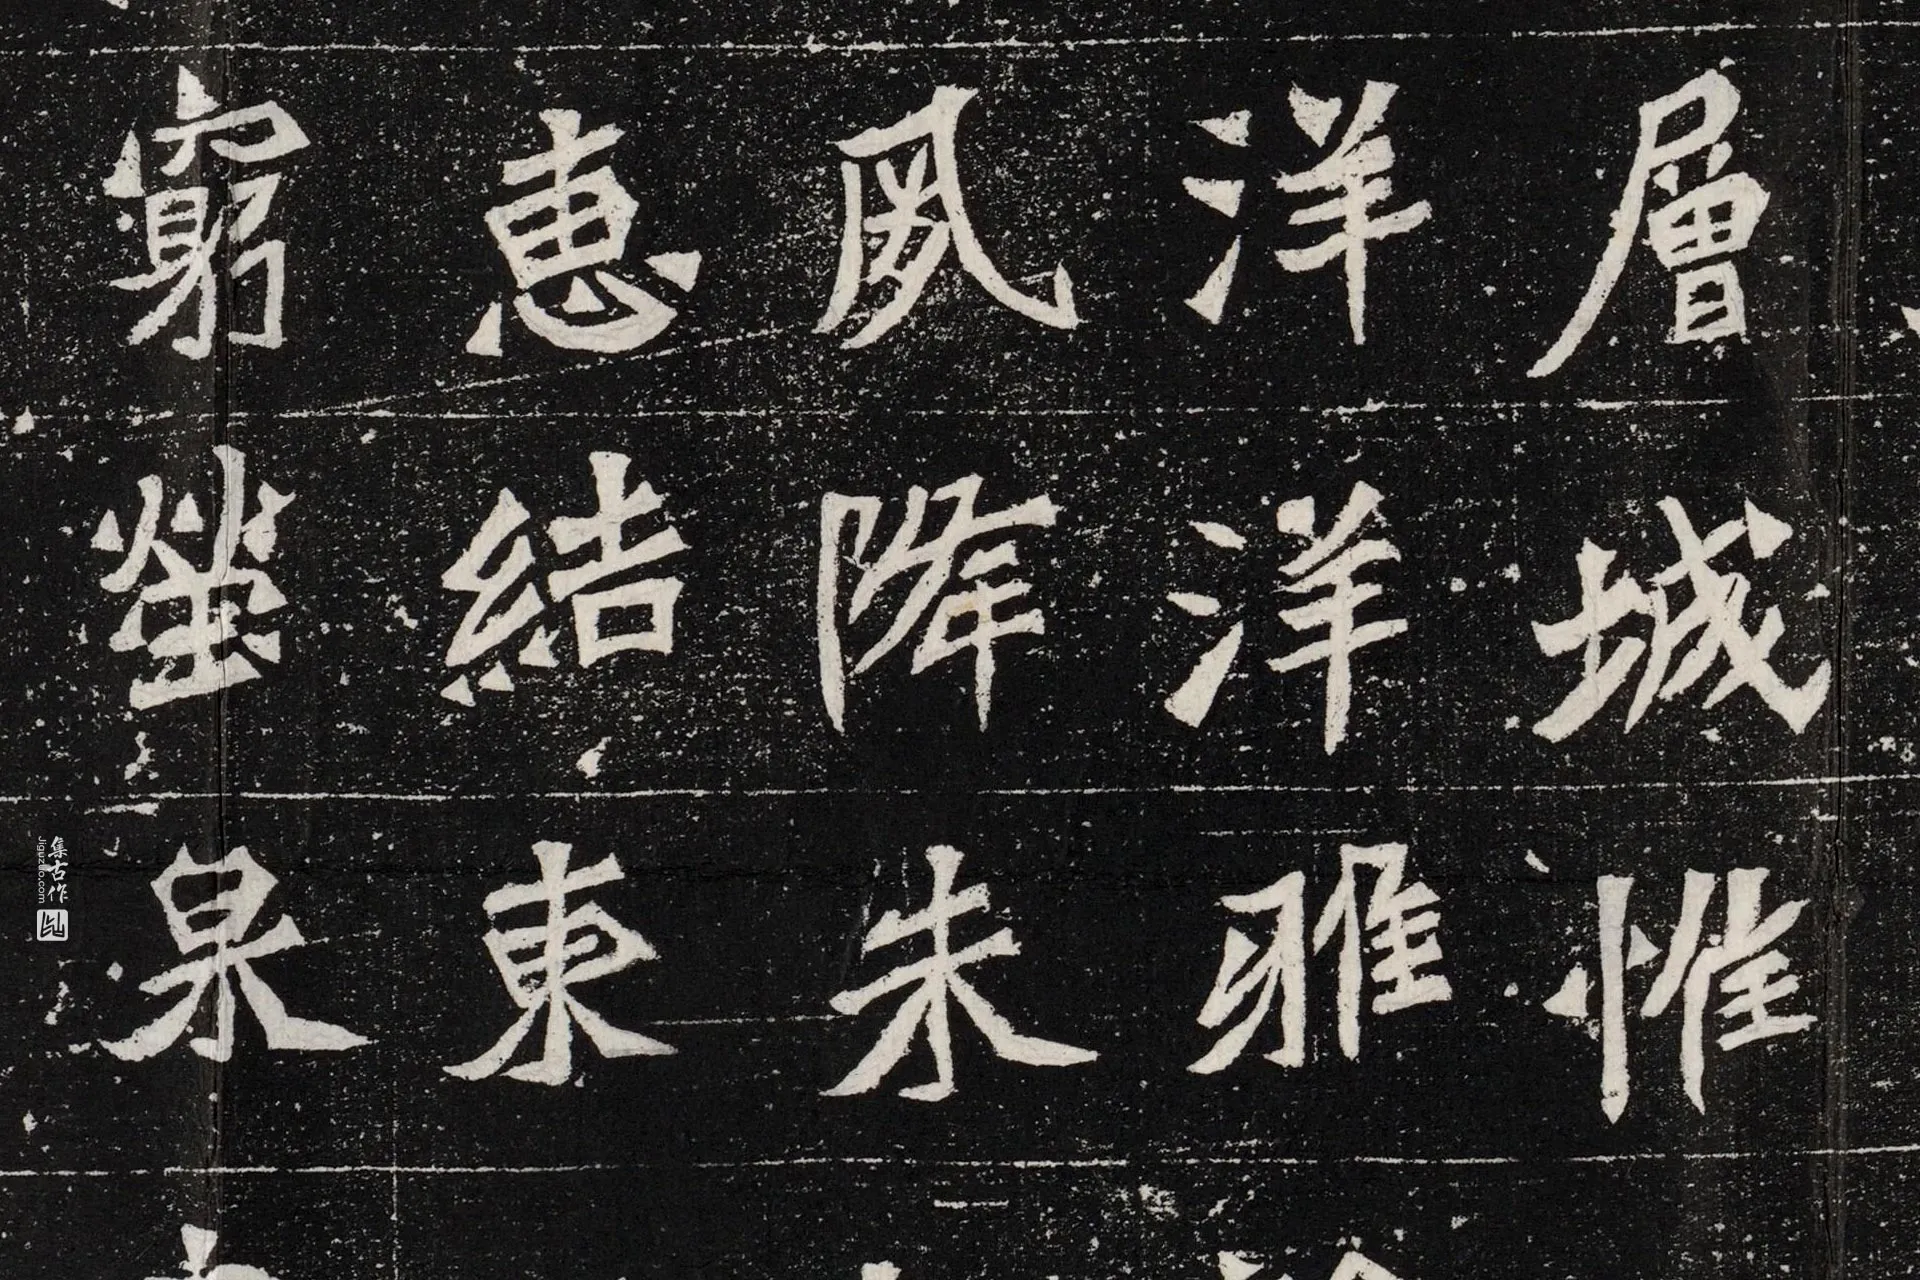 層城惟
洋洋雅
風降朱
惠結東
窮塋泉
集古作
Jiguzuo.com